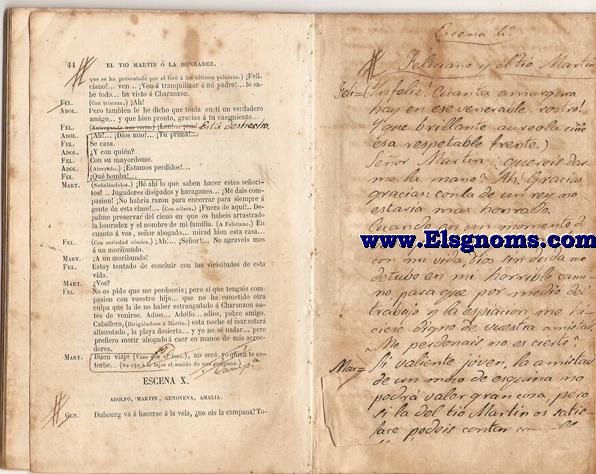 44 EL TIO MARTIN Ó LA HONRADEZ.
que se ha presentado por el foro á las últimas palabras.) ¡Feli-
ciano!... ven.. ¡Vená tranquilizar á mi padre!... lo sa-
be todo... ha visto á Charanzon.
FEL. (Con tristeza.) ¡Ah!
ADOL. Pero tambien le he dicho que tenia en tí un verdadero
amigo... y que bien pronto, gracias á tu casamiento...
FEL. (Entregando una carta.) ¡Lee!... Está deshecho.
ADOL. ¡Ah!... ¡Dios mio!... ¡Tu prima!...
FEL. Se casa.
ADOL. ¿Y con quién?
FEL. Con su mayordomo.
ADOL. (Aterrado.) ¡Estamos perdidos!...
FEL. ¡Qué bomba!...
MART. (Señalándolos.) ¡Hé ahí lo que saben hacer estos señori-
tos! .. Jugadores disipados y haraganes... ¡Me dais com-
pasion! ¡No habria razon para encerrar para siempre á
gente de esta clase!... (Con ira.) ¡Fuera de aquí!.. De-
jadme preservar del cieno en que os habeis arrastrado
la honradez y el nombre de mi familia. (A Feliciano.) En
cuanto á vos, señor ahogado... mirad bien esta casa...
FEL. (Con seriedad cómica.) ¡Ah!... ¡Señor!... No agraveis mas
á un moribundo.
MART. ¡A un moribundo!
FEL. Estoy tentado de concluir con las vicisitudes de esta
vida.
MART. ¿Vos?
FEL. No os pido que me perdoneis; pero sí que tengais com-
pasion con vuestro hijo... que no ha cometido otra
culpa que la de no haber estrangulado á Charanzon an-
tes de venirse. Adios... Adolfo... adios, pobre amigo.
Caballero, (Dirigiéndose á Martin.) esta noche el mar estará
alborotado, la playa desierta... y yo no sé nadar... pero
prefiero morir ahogado á caer en manos de mis acree-
dores.
MART. Buen viaje (Vase por el foro.), no seré yo quien te es-
torbe... (Se oye á lo lejos el sonido de una campana.)
ESCENA X.
ADOLFO, MARTIN, GENOVEVA, AMALIA.
GEN. Dubourg va á hacerse á la vela, ¿no ois la campana? To-
Escena
Feliciano y el tio Martin
Feli= ¡Infeliz! Cuanta amargura
hay en ese venerable rostro!
Y que brillante aureola ciñe
esa respetable frente.)
Señor Martin quereis dar
me la mano? Ah, Gracias
gracias: con la de un rey no
estaria mas honrado.
Cuando en un momento de
www.Elsgnoms.com
con mi vida, Dios sin duda me
detubo en mi horrible cami-
no para que por medio del
trabajo y la espiacion, me hi-
ciese digno de vuestra amistad.
Me perdonais no es cierto?
Mar= Si valiente joven, la amistad
de un mozo de esquina no
podrá valor gran cosa, pero
si la del tio Martin os satis-
face podeis contar con